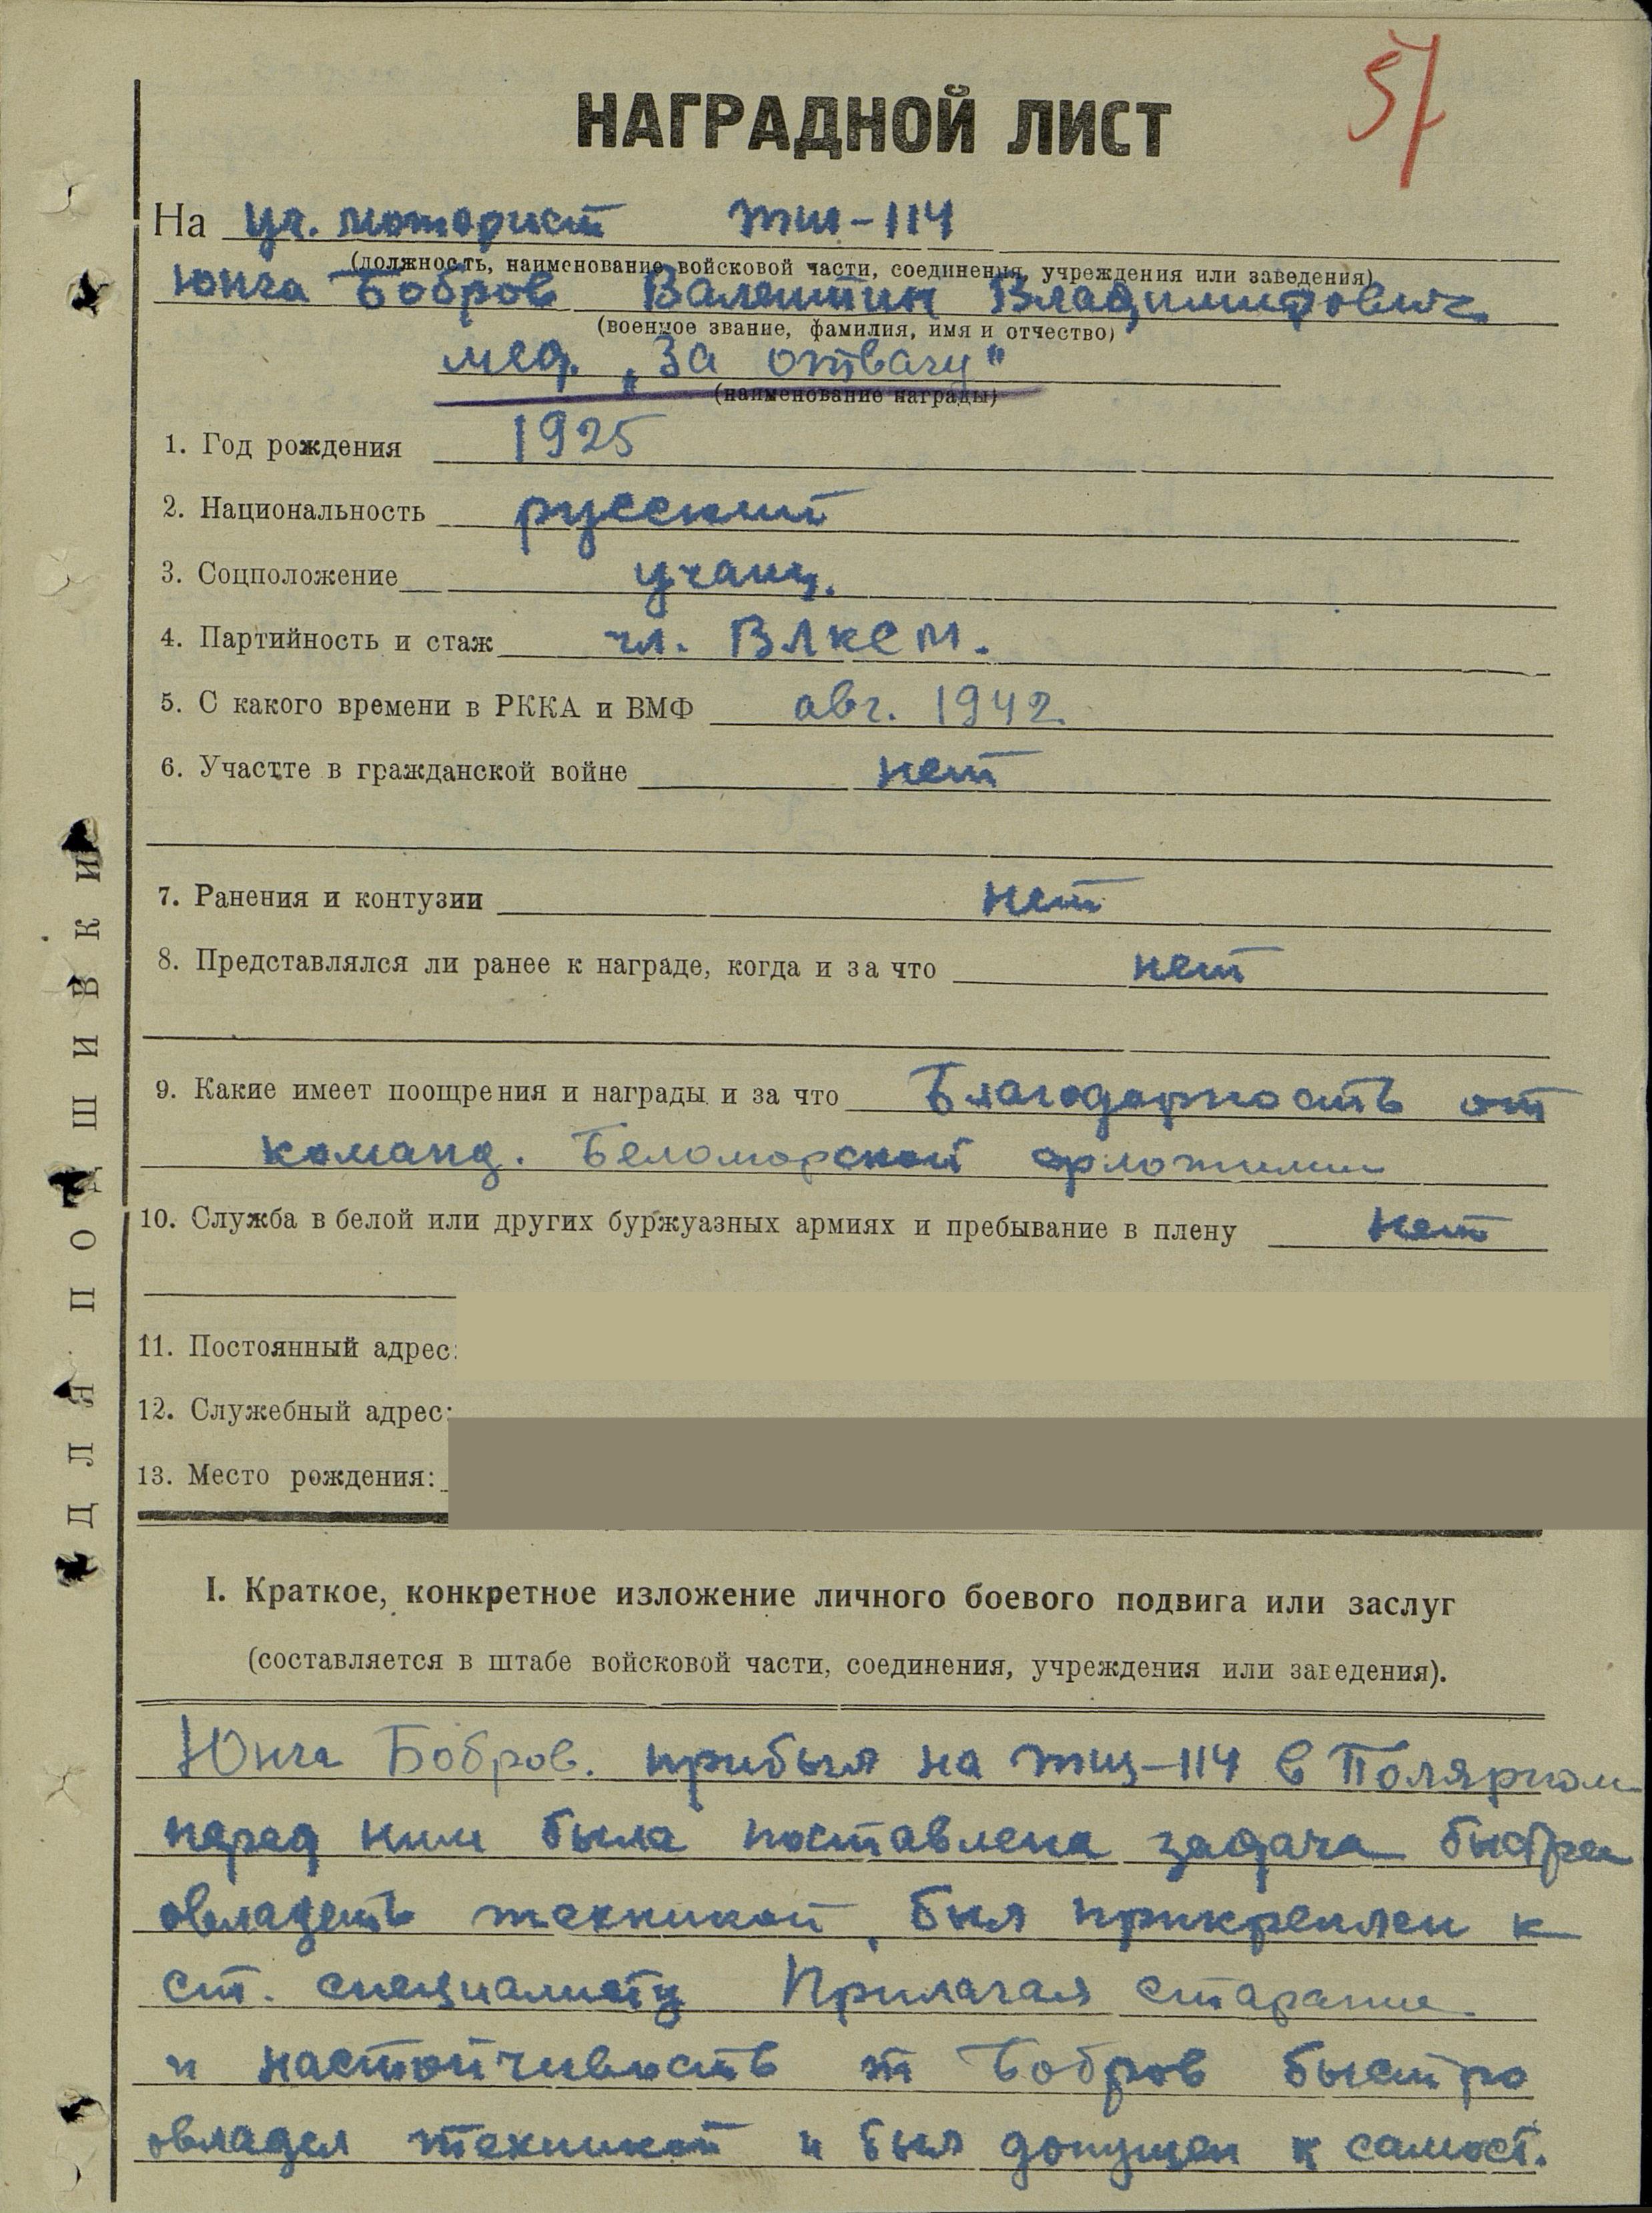 57
НАГРАДНОЙ ЛИСТ
На уч. моторист ТЩ-114
(должность, наименование войсковой части, соединения, учреждения или заведения)
Юнга Бобров Валентин Владимирович
(военное звание, фамилия, имя и отчество)
мед. „За отвагу"
(наименование награды)
1. Год рождения 1925
2. Национальность русский
3. Соцположение учащ.
4. Партийность и стаж чл. ВЛКСМ.
5. С какого времени в РККА и ВМФ авг. 1942.
6. Участте в гражданской войне нет
7. Ранения и контузии нет
8. Представлялся ли ранее к награде, когда и за что нет
9. Какие имеет поощрения и награды и за что Благодарность от
команд. Беломорской флотилии
10. Служба в белой или других буржуазных армиях и пребывание в плену нет
11. Постоянный адрес:
12. Служебный адрес:
13. Место рождения:
I. Краткое, конкретное изложение личного боевого подвига или заслуг
(составляется в штабе войсковой части, соединения, учреждения или заведения).
Юнга Бобров. прибыл на ТЩ-114 в Полярном
перед ним была поставлена задача быстрее
овладеть техникой, был прикреплен к
ст. специалисту Прилагая старание
и настойчивость т Бобров быстро
овладел техникой и был допущен к самост.
ДЛЯ ПОДШИВКИ